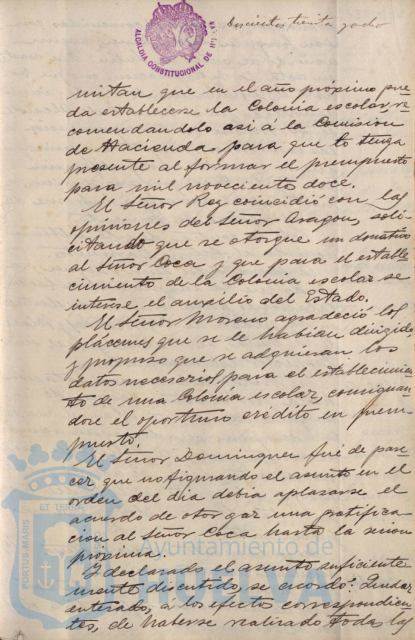 Doscientos treinta y ocho
ALCALDIA CONSTITUCIONAL DE
mitan que en el año próximo pue
da establecerse la Colonia escolar, re
comendandolo asi á la Comision
de Hacienda para que lo tenga
presente al formar el presupuesto
para mil novecientos doce.
El Señor Rey coincidió con las
opiniones del Señor Aragon, soli
citando que se otorgue un donativo
al Señor Coca y que para el estable
cimiento de la Colonia escolar se
interese el auxilio del Estado.
El Señor Moreno agradeció los
plácemes que se le habian dirigido
y propuso que se adquieran los
datos necesarios para el establecimien
to de una Colonia escolar, consignan
dose el oportuno crédito en presu
puesto.
El Señor Dominguez fué de pare
cer que no figurando el asunto en el
orden del dia debia aplazarse el
acuerdo de otorgar una gratifica
cion al Señor Coca hasta la sesion
próxima.
Y declarado el asunto suficiente
mente discutido, se acordó: Quedar
enterado, á los efectos correspondien
tes, de haberse realizado toda la
PORTUS MARIS ET TERRÆ
Ayuntamiento de
HUELVA